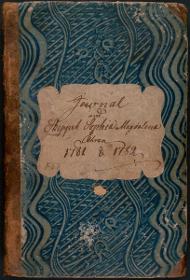 Journal
Skeppet Sophia Magdalena
Åhren
1781 & 1782